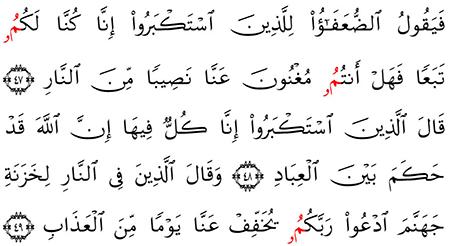 فَيَقُولُ ٱلضُّعَفَٰٓؤُا۟ لِلَّذِينَ ٱسْتَكْبَرُوٓا۟ إِنَّا كُنَّا لَكُمُۥ
تَبَعًا فَهَلْ أَنتُمُۥ مُغْنُونَ عَنَّا نَصِيبًا مِّنَ ٱلنَّارِ ٤٧
قَالَ ٱلَّذِينَ ٱسْتَكْبَرُوٓا۟ إِنَّا كُلٌّ فِيهَا إِنَّ ٱللَّهَ قَدْ
حَكَمَ بَيْنَ ٱلْعِبَادِ ٤٨ وَقَالَ ٱلَّذِينَ فِى ٱلنَّارِ لِخَزَنَةِ
جَهَنَّمَ ٱدْعُوا۟ رَبَّكُمُۥ يُخَفِّفْ عَنَّا يَوْمًا مِّنَ ٱلْعَذَابِ ٤٩